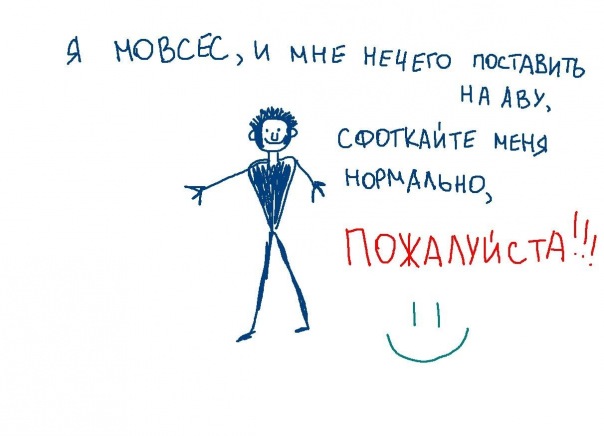 Я МОВСЕС, И МНЕ НЕЧЕГО ПОСТАВИТЬ
НА АВУ,
СФОТКАЙТЕ МЕНЯ
НОРМАЛЬНО,
ПОЖАЛУЙСТА!!!